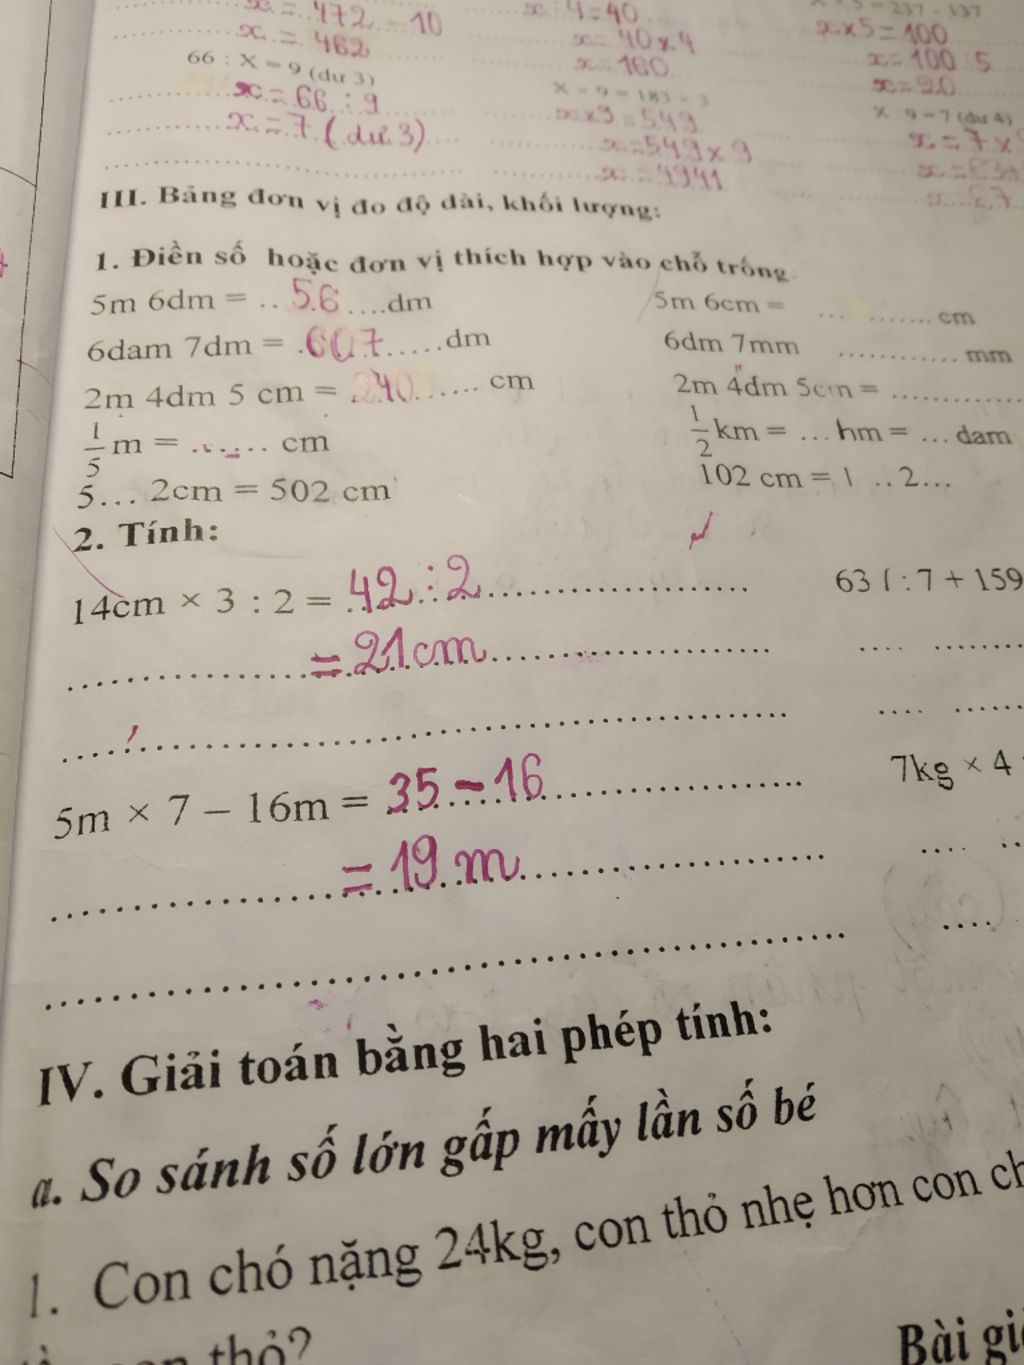 x = 472 - 10
x = 462
66 : X = 9 (dư 3)
x = 66 : 9
x = 7 (dư 3)
x : 4 = 40
x = 40 x 4
x = 160
X : 9 = 183 × 3
x x 9 = 549
x = 549 x 9
x = 4941
x x 5 = 100
x = 100 : 5
x = 20
X : 9 = 7 (dư 4)
x = 7 x
III. Bảng đơn vị đo độ dài, khối lượng:
1. Điền số hoặc đơn vị thích hợp vào chỗ trống
5m 6dm = .. 56 ....dm
5m 6cm = ... ........ cm
6dam 7dm = .607.....dm
6dm 7mm ............ mm
2m 4dm 5 cm = .240...... cm
2m 4dm 5cm = .............
1/5 m = ...... cm
1/2 km = ... hm = ... dam
5... 2cm = 502 cm
102 cm = 1 ..2...
2. Tính:
14cm × 3 : 2 = 42 : 2
63 l : 7 + 159
= 21 cm
5m × 7 – 16m = 35 - 16
7kg × 4
= 19 m
IV. Giải toán bằng hai phép tính:
a. So sánh số lớn gấp mấy lần số bé
1. Con chó nặng 24kg, con thỏ nhẹ hơn con ch
thỏ?
Bài gi